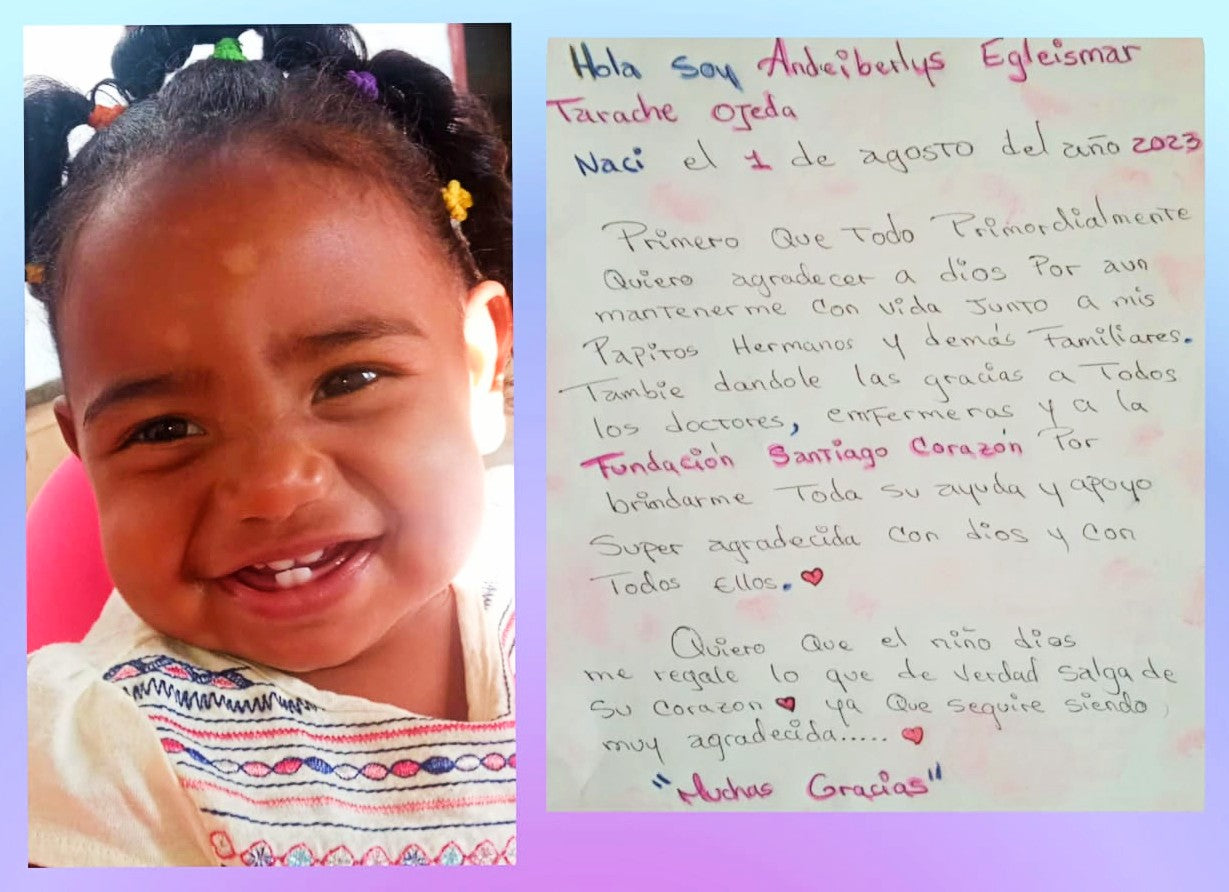 Hola soy Andeiberlys Egleismar
Tarache Ojeda
Naci el 1 de agosto del año 2023
Primero Que Todo Primordialmente
Quiero agradecer a dios Por aun
mantenerme con vida Junto a mis
Papitos Hermanos y demás Familiares.
Tambie dandole las gracias a Todos
los doctores, enfermeras y a la
Fundación Santiago Corazón Por
brindarme Toda su ayuda y apoyo
Super agradecida con dios y con
Todos Ellos. ♥
Quiero Que el niño dios
me regale lo que de verdad salga de
su corazon ♥ ya Que seguire siendo
muy agradecida..... ♥
"Muchas Gracias"